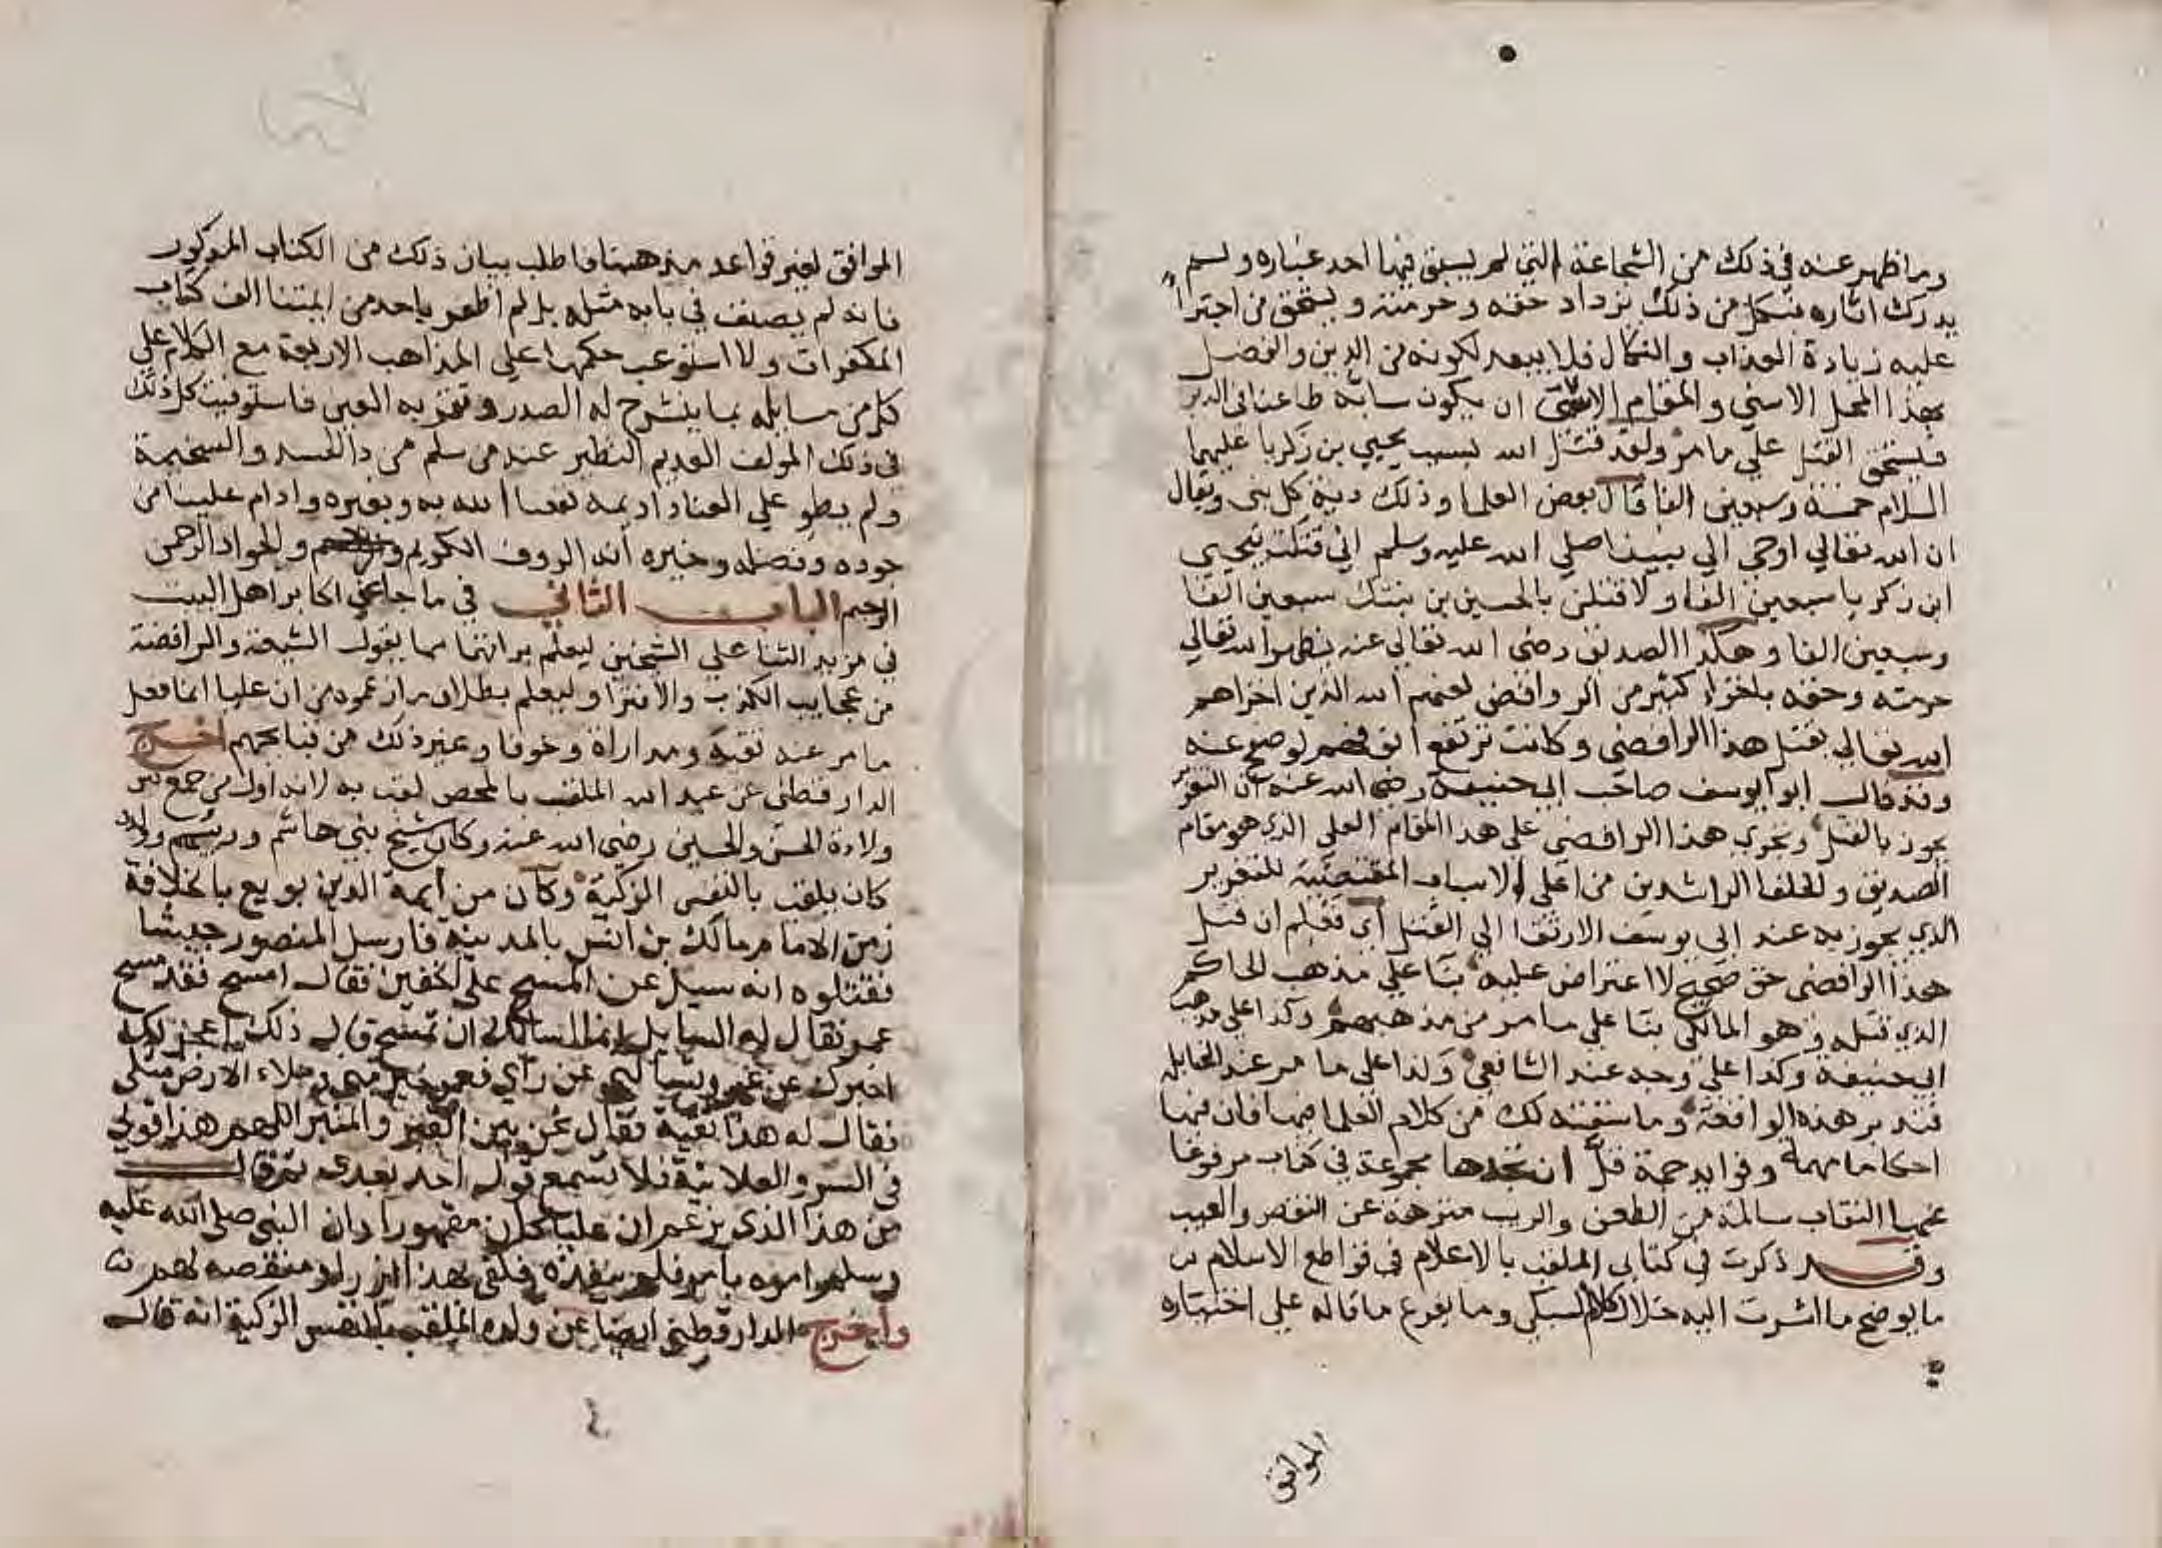 وما ظهر عنه في ذلك من الشجاعة التي لم يسبق فيها احد غباره ولم
يدرك اثاره فبكل من ذلك يزداد حقه وحرمته ويستحق من اجترأ
عليه زيادة العذاب والنكال فلا يبعد لكونه من الدين والفضل
بهذا المحل الاسنى والمقام ان يكون سابه طاعنا في الدين
فيستحق القتل على ما مر ولقد قتل الله بسبب يحيى بن زكريا عليهما
السلام خمسة وسبعين الفا قال بعض العلما وذلك دية كل نبي ويقال
ان الله تعالي اوحى الي نبينا صلي الله عليه وسلم اني قتلت بيحيى
ابن زكريا سبعين الفا ولاقتلن بالحسين بن بنتك سبعين الفا
وسبعين الفا وهكذا الصديق رضي الله تعالى عنه يظهر الله تعالي
حرمته وحقه باخزاء كثير من الروافض لعنهم الله الذين اخزاهم
الله تعالي بقتل هذا الرافضي وكانت ترتفع انوفهم لو صفح عنه
وقد قال ابو يوسف صاحب ابي حنيفة رضي الله عنه ان التعزير
يجوز بالقتل وتجري هذا الرافضي على هذا المقام العلي الذي هو مقام
الصديق والخلفا الراشدين من اعلى الاسباب المقتضية للتعزير
الذي يجوز به عند ابي يوسف الارتقا الي القتل فعلم ان قتل
هذا الرافضي حق صحيح لا اعتراض عليه بنا علي مذهب الحاكم
الذي قتله وهو المالكي بنا علي ما مر من مذهبهم وكذا على مذهب
ابي حنيفة وكذا علي وجه عند الشافعي ولذا على ما مر عند الحنابله
فتدبر هذه الواقعة وما سقته لك من كلام العلما فيها فان فيها
احكاما مهمة وفوايد جمة قل ان تجدها مجموعة في كتاب مرفوعا
عنها النقاب سالمة من الطعن والريب منزهة عن النقص والعيب
وقد ذكرت في كتابي الملقب بالاعلام في قواطع الاسلام
ما يوضح ما اشرت اليه خلال كلام السبكي وما يفرع ما قاله علي اختياره
الموافق
الموافق لغير قواعد مذهبنا فاطلب بيان ذلك من الكتاب المذكور
فانه لم يصنف في بابه مثله بل لم اظفر باحد من ايمتنا الف كتاب
المكفرات ولا استوعب حكمها علي المذاهب الاربعة مع الكلام علي
كل من مسايله بما ينشرح له الصدر وتقر به العين فاستوفيت كل ذلك
في ذلك المولف العديم النظير عند من سلم من دا الحسد والسخيمة
ولم يطو علي العناد اديمه نفعنا الله به وبغيره وادام علينا من
جوده وفضله وخيره انه الروف الكريم والجواد الرحمن
الرحيم الباب الثاني في ما جا عن اكابر اهل البيت
في مزيد الثنا علي الشيخين ليعلم براتهما مما يقول الشيعة والرافضة
من عجايب الكذب والافترا وليعلم بطلان ما زعموه من ان عليا انما فعل
ما مر عنه تقية ومداراة وخوفا وغير ذلك من قبايحهم اخرج
الدارقطني عن عبد الله الملقب بالمحض لقب به لانه اول من جمع
ولادة الحسن والحسين رضي الله عنه وكان شيخ بني هاشم ورييسهم وولده
كان يلقب بالنفس الزكية وكان من أيمة الدين بويع بالخلافة
زمن الامام مالك بن انس بالمدينة فارسل المنصور جيشا
فقتلوه انه سيل عن المسح على الخفين فقال امسح فقد مسح
عمر فقال له السايل انما اسالك ان تمسح قال ذلك اعجز لك
اخبرك عن عمر وتسالني عن رأي فعمر خير مني وملاء الارض مثلي
فقال له هذا تقية فقال نحن بين القبر والمنبر اللهم هذا قولي
في السر والعلانية فلا تسمع قول احد بعدي ثم قال
من هذا الذي يزعم ان عليا كان مقهورا وان النبي صلى الله عليه
وسلم امره بامر فلم ينفذه فكفى بهذا ازرا ومنقصة له
واخرج الدارقطني ايضا عن ولده الملقب بالنفس الزكية انه قال